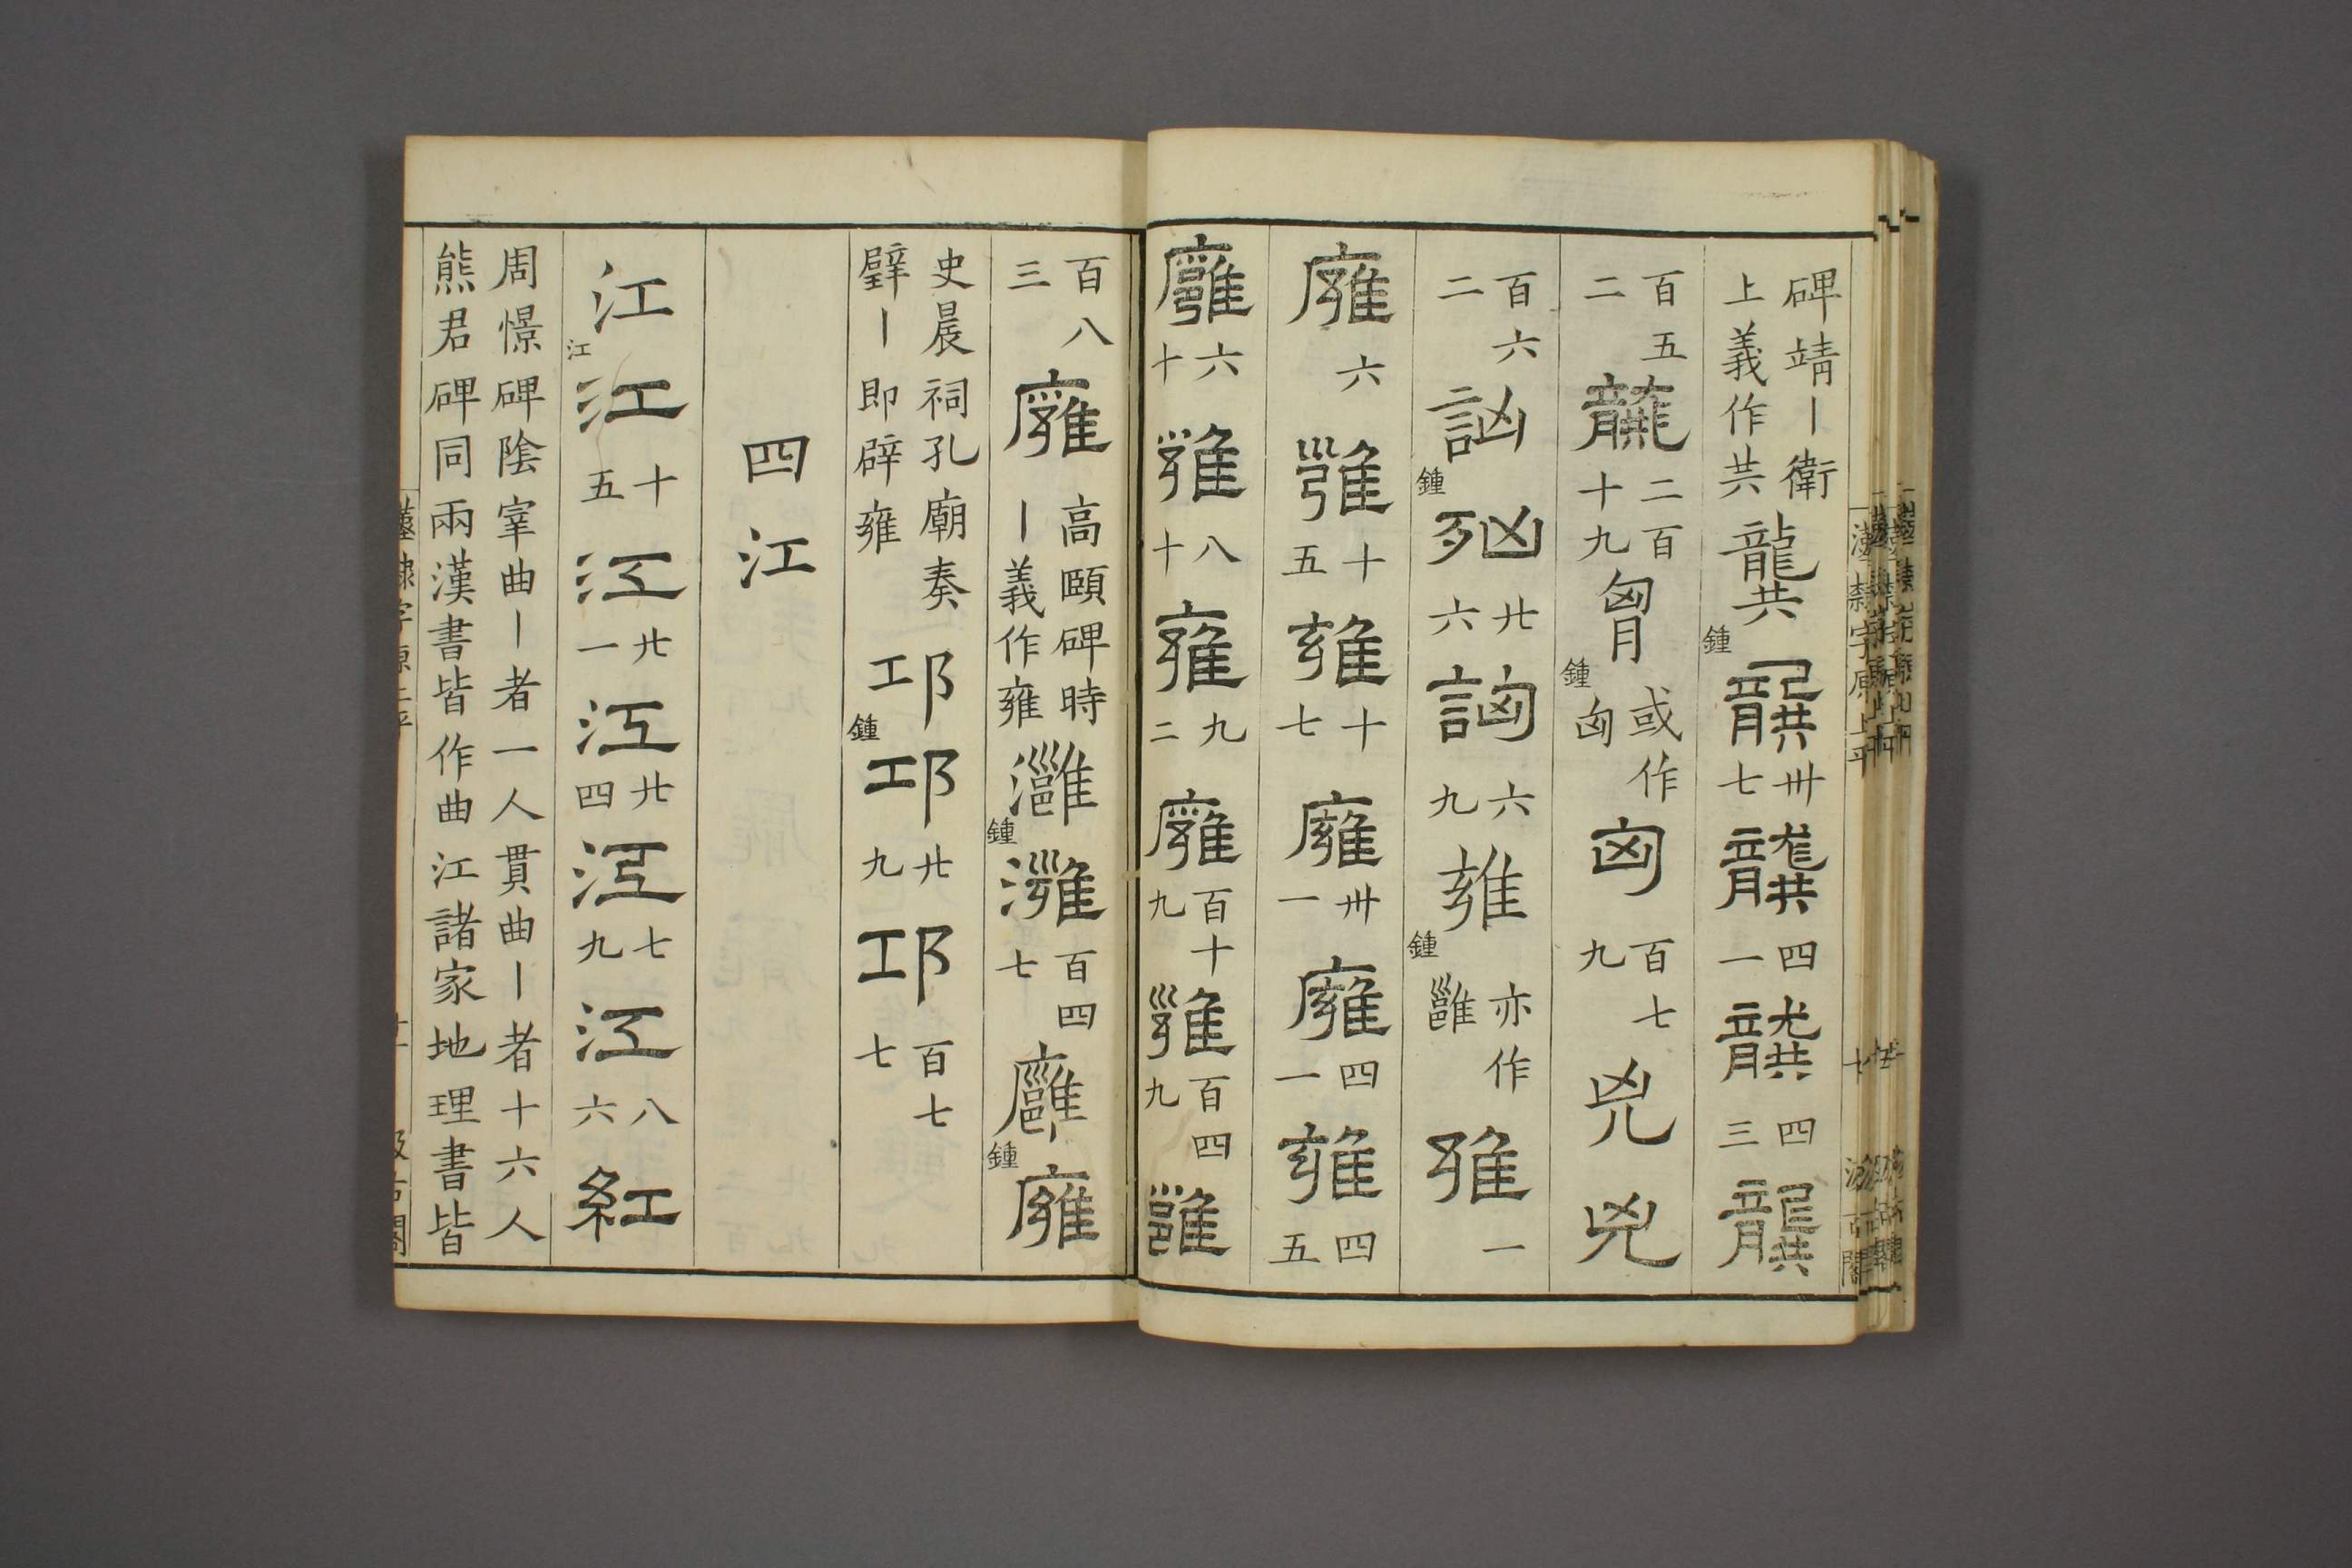 碑靖丨衛上義作共龔鍾龔丗七龔四一龔四三龔
百五二龔二百十九胷鍾或作匈匈百七九兇兇
百六二訩鍾䛪廿六詾六九雍鍾亦作雝雍一
廱六雍十五雍十七廱丗一廱四一雍四五
廱六十雍八十雍九二廱百十九雍百四九雝
百八三廱高頤碑時丨義作雍灉鍾灉百四七廱鍾廱
史晨祠孔廟奏躃丨即辟雍邛鍾邛廿九邛百七七
四江
江江江十五江廿一江廿四江七九江八六紅
周憬碑陰宰曲丨者一人貫曲丨者十六人
熊君碑同兩漢書皆作曲江諸家地理書皆
漢隸字原上平
汲古閣